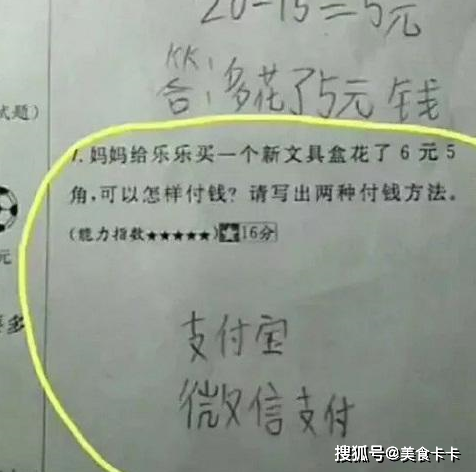 20-15=5元
答:多花了5元钱
试题)
7.妈妈给乐乐买一个新文具盒花了6元5
角,可以怎样付钱?请写出两种付钱方法。
(能力指数★★★★★)★16分
元
多
支付宝
微信支付
搜狐号@美食卡卡